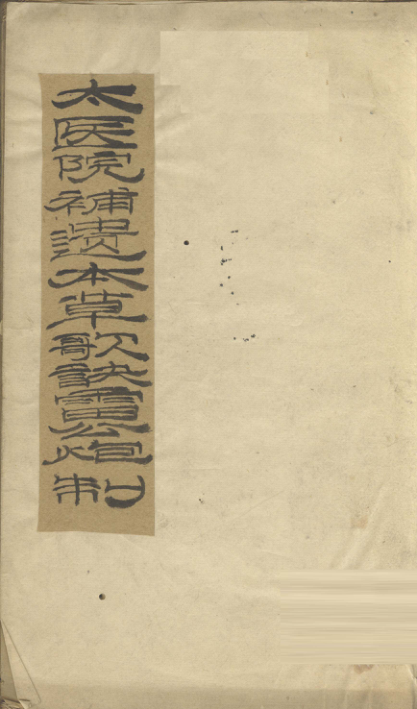 太医院補遗本草歌訣雷公炮制